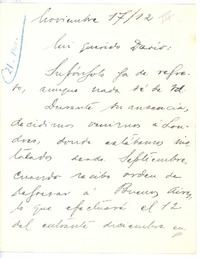 Noviembre 17/12
Mi querido Dario:
Supóngolo ya de regre-
so, aunque nada sé de Vd.
Durante su ausencia,
decidimos venirnos á Lon-
dres, donde estábamos ins-
talados desde Septiembre
cuando recibo orden de
regresar á Buenos Aires,
lo que efectuaré el 12
del entrante diciembre en